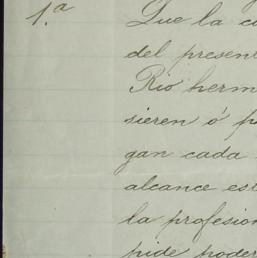 1.a Que la c
del presen
Rio herm
sieren ó p
gan cada
alcance es
la profesion
pide poder